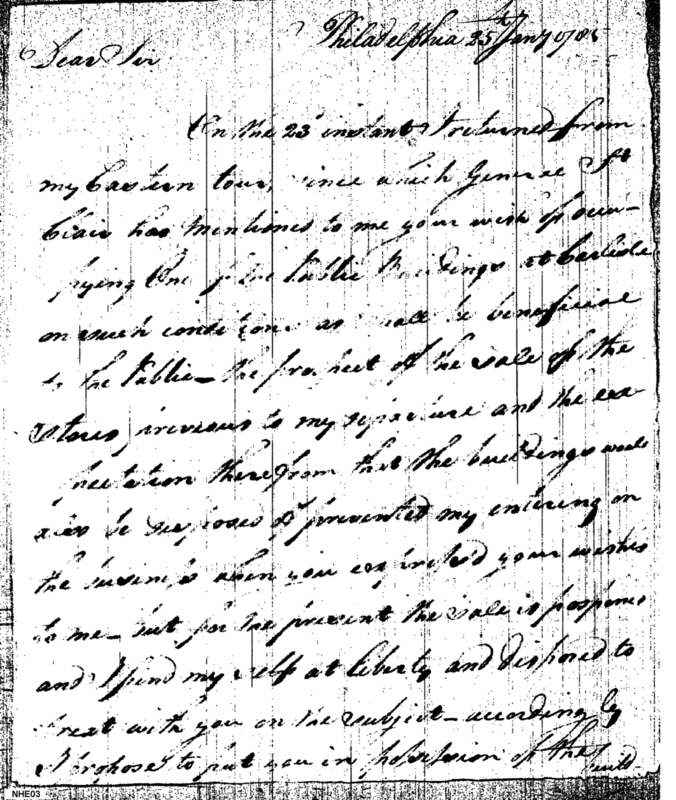 Philadelphia 25th Jany 1785
Dear Sir
On the 23d instant I returned from
my Eastern tour, since which General St
Clair has mentioned to me your wish of occu-
pying One of the Public Buildings at Carlisle
on such conditions as shall be beneficial
to the Public — the prospect of the sale of the
stores previous to my departure and the ex-
pectation therefrom that the buildings would
also be disposed of prevented my entering on
the business when you expressed your wishes
to me — but for the present the sale is postponed
and I find my self at liberty and disposed to
treat with you on the subject — accordingly
I propose to put you in possession of the
build-
NHE03